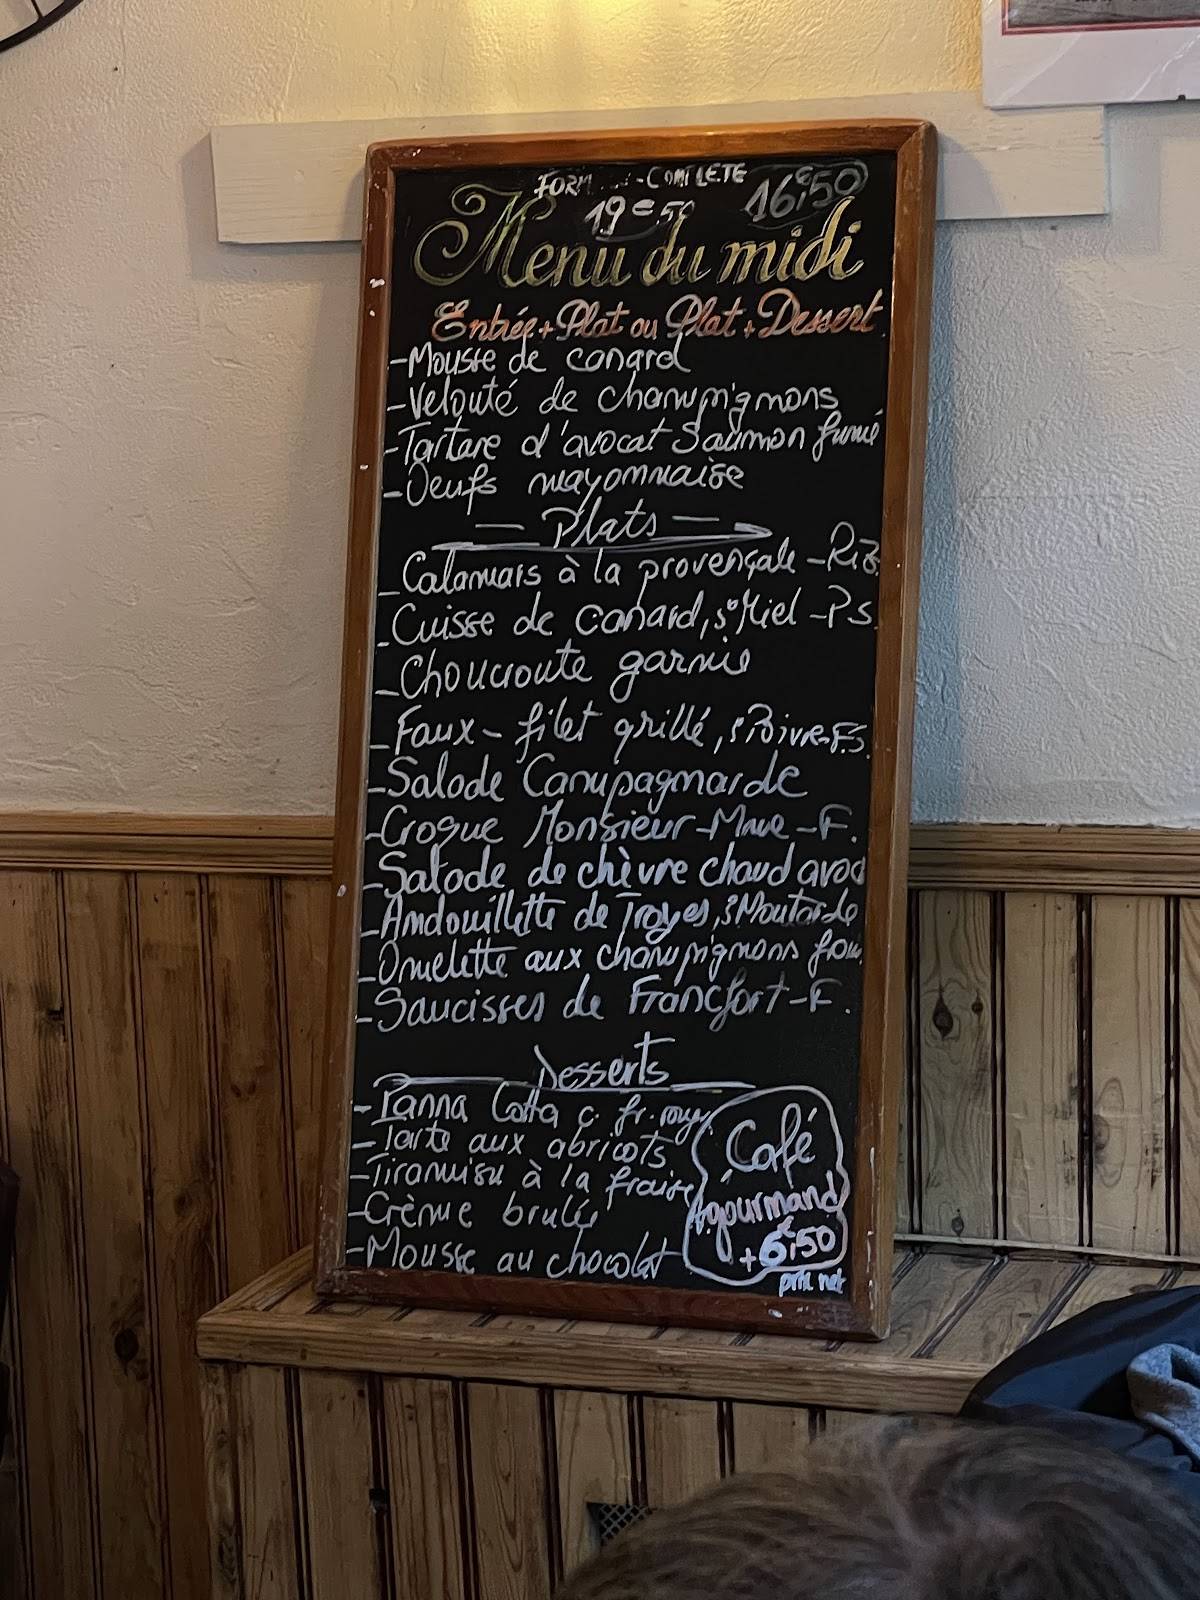 COMPLETE 16€,50
19€,50
Menu du midi
Entrée + Plat ou Plat + Dessert
-Mousse de canard
-Velouté de champignons
-Tartare d'avocat Saumon fumé
-Oeufs mayonnaise
— Plats —
-Calamars à la provençale -Riz
-Cuisse de canard, s° Miel -P.S.
-Choucroute garnie
-Faux-filet grillé, s Poivre-F.S.
-Salade Campagnarde
-Croque Monsieur-Mme-F.
-Salade de chèvre chaud avoc
-Andouillette de Troyes, s Moutarde
-Omelette aux champignons
-Saucisses de Francfort-F.
Desserts
-Panna Cotta c. fr. rouges
-Tarte aux abricots
-Tiramisu à la fraise
-Crème brulée
-Mousse au chocolat
Café
gourmand
+6€,50
prix net